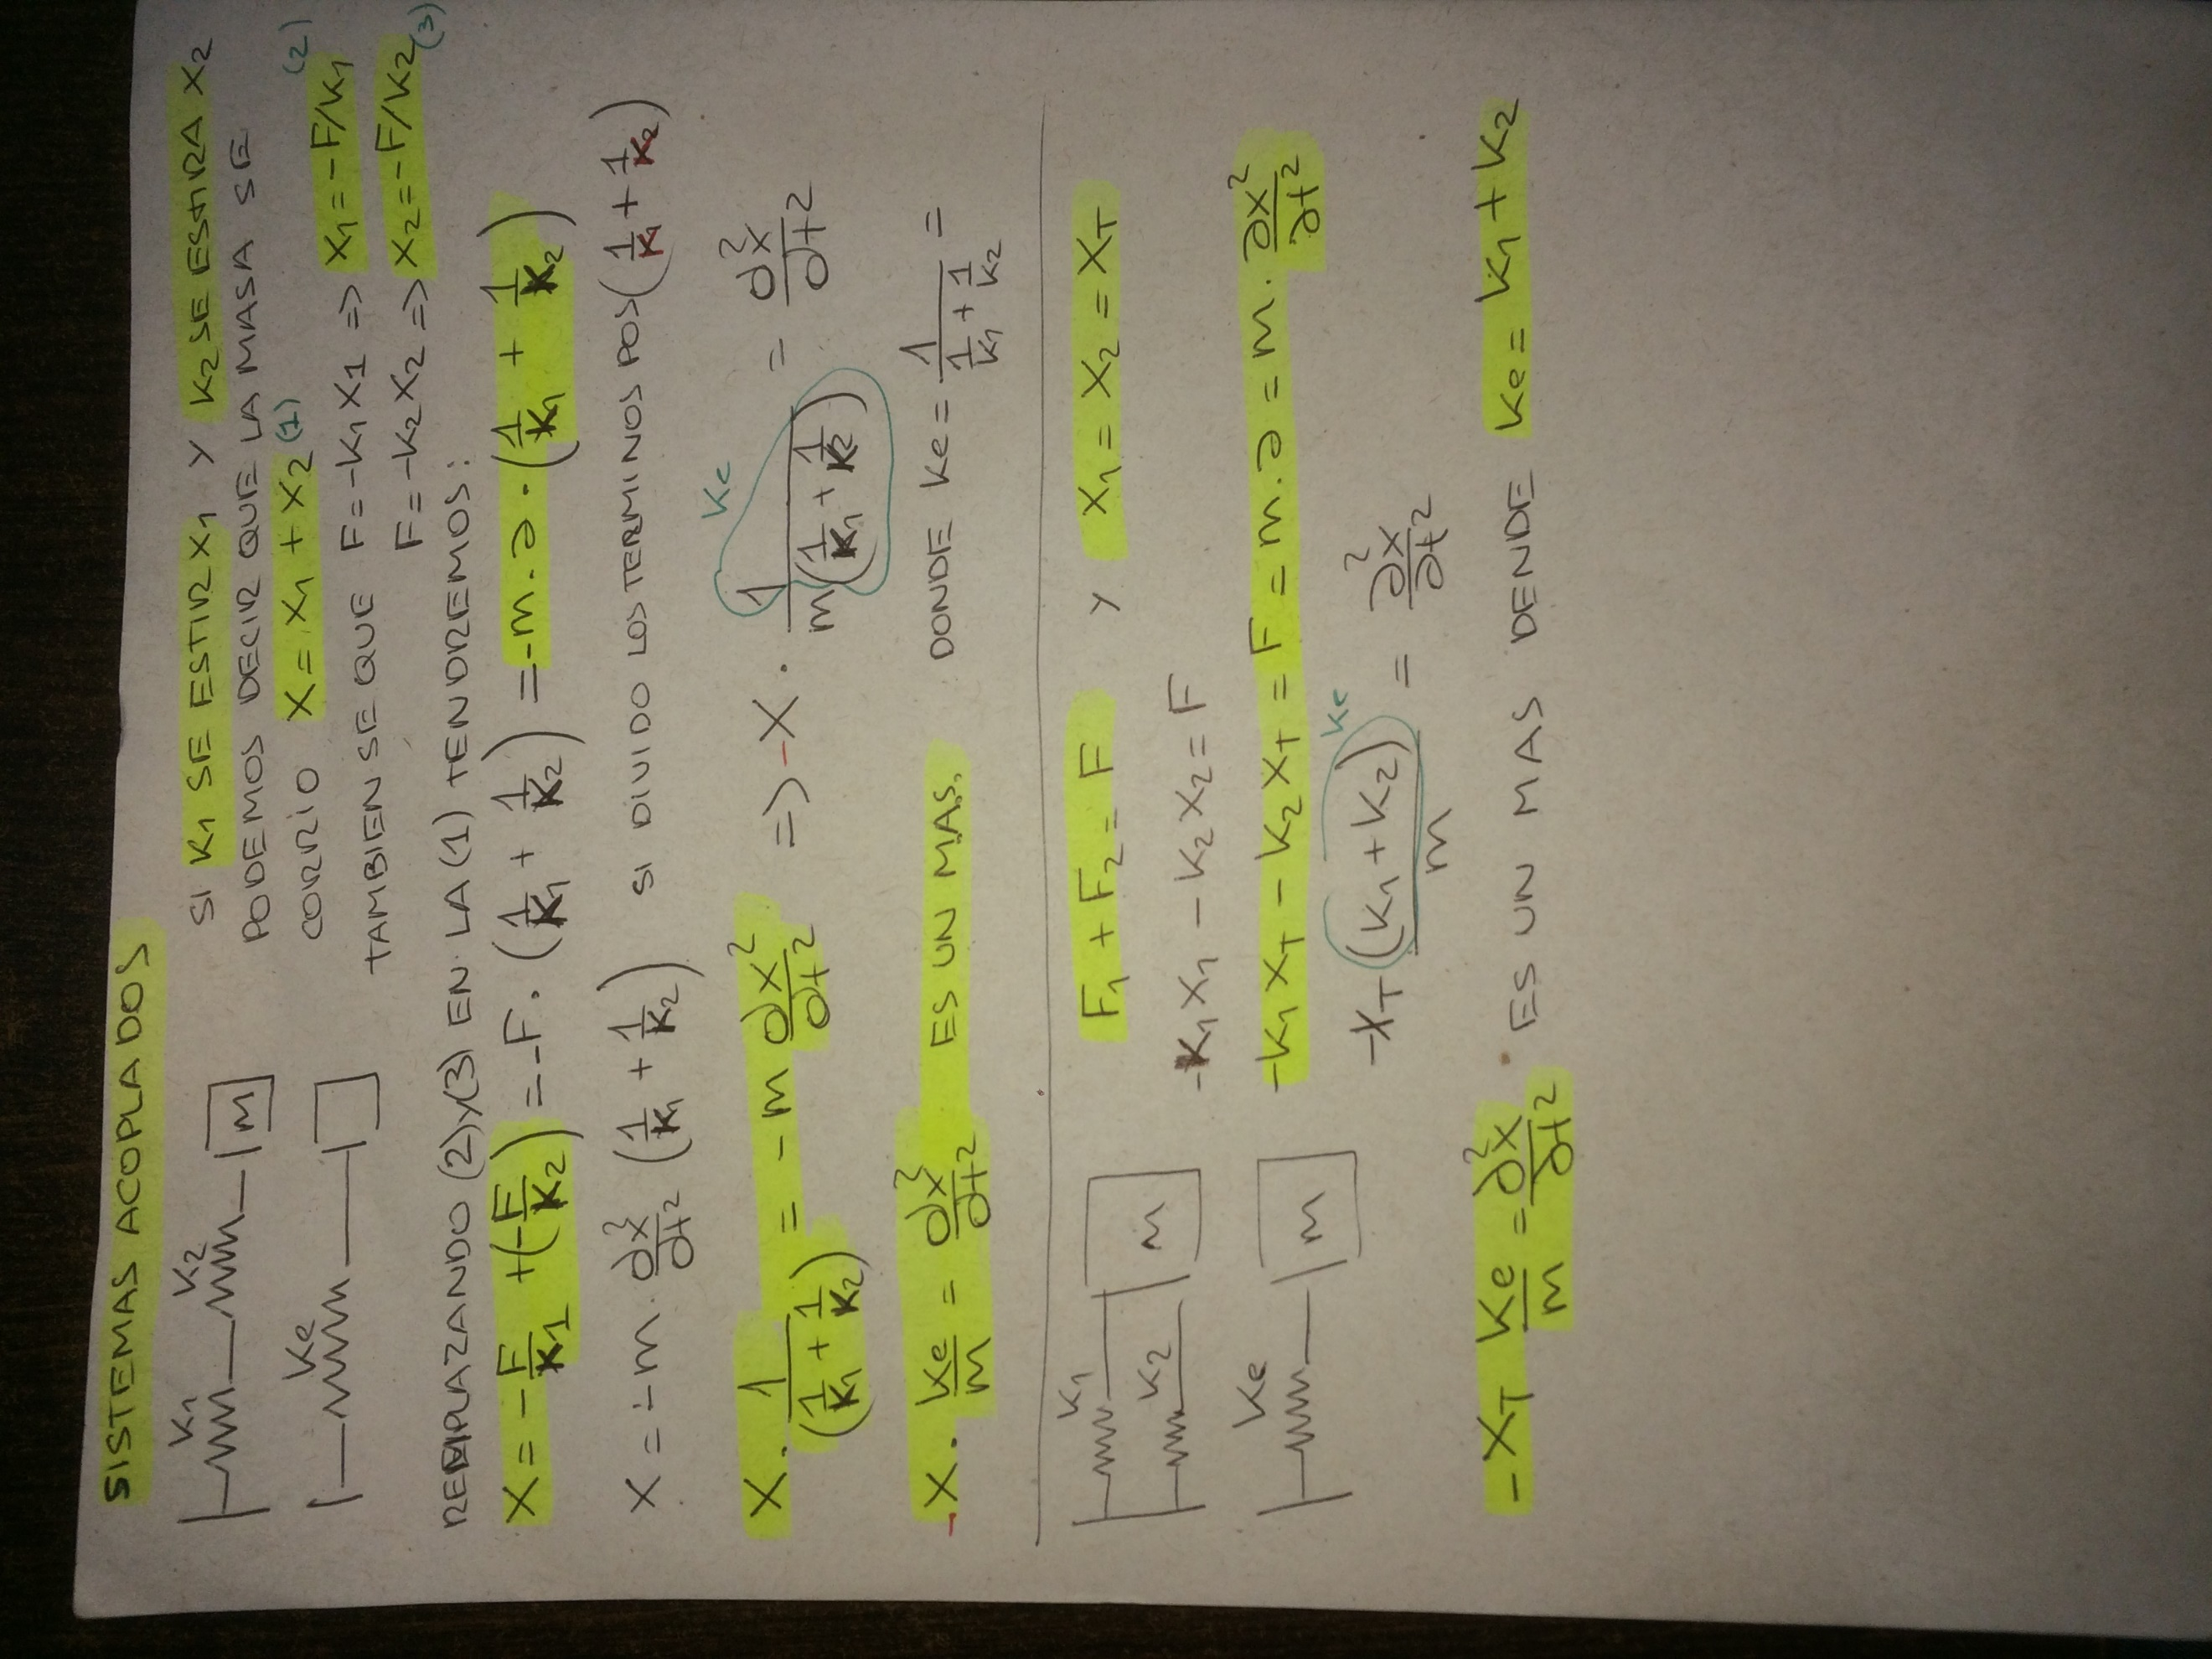 SISTEMAS ACOPLADOS
K1 K2 m
SI K1 SE ESTIR X1 Y K2 SE ESTIRA X2
PODEMOS DECIR QUE LA MASA SE
CORRIO X = X1 + X2 (1)
Ke
TAMBIEN SE QUE F = -K1 X1 => X1 = -F/K1 (2)
F = -K2 X2 => X2 = -F/K2 (3)
REEMPLAZANDO (2) y (3) EN LA (1) TENDREMOS:
X = -F/K1 + (-F/K2) = -F . (1/K1 + 1/K2) = -m . a . (1/K1 + 1/K2)
X = -m . ∂²x/∂t² (1/K1 + 1/K2) SI DIVIDO LOS TERMINOS POS (1/K1 + 1/K2)
X . 1/(1/K1 + 1/K2) = -m ∂x²/∂t² => -X . 1/m(1/K1 + 1/K2) = ∂²x/∂t²
Ke
-X . Ke/m = ∂x²/∂t² ES UN MAS. DONDE Ke = 1/(1/K1 + 1/K2) =
K1 K2 m
F1 + F2 = F Y X1 = X2 = XT
-K1 X1 - K2 X2 = F
Ke m
-K1 XT - K2 XT = F = m . a = m . ∂x²/∂t²
-XT (K1 + K2)/m = ∂²x/∂t²
Ke
-XT Ke/m = ∂²x/∂t² . ES UN MAS DENDE Ke = K1 + K2